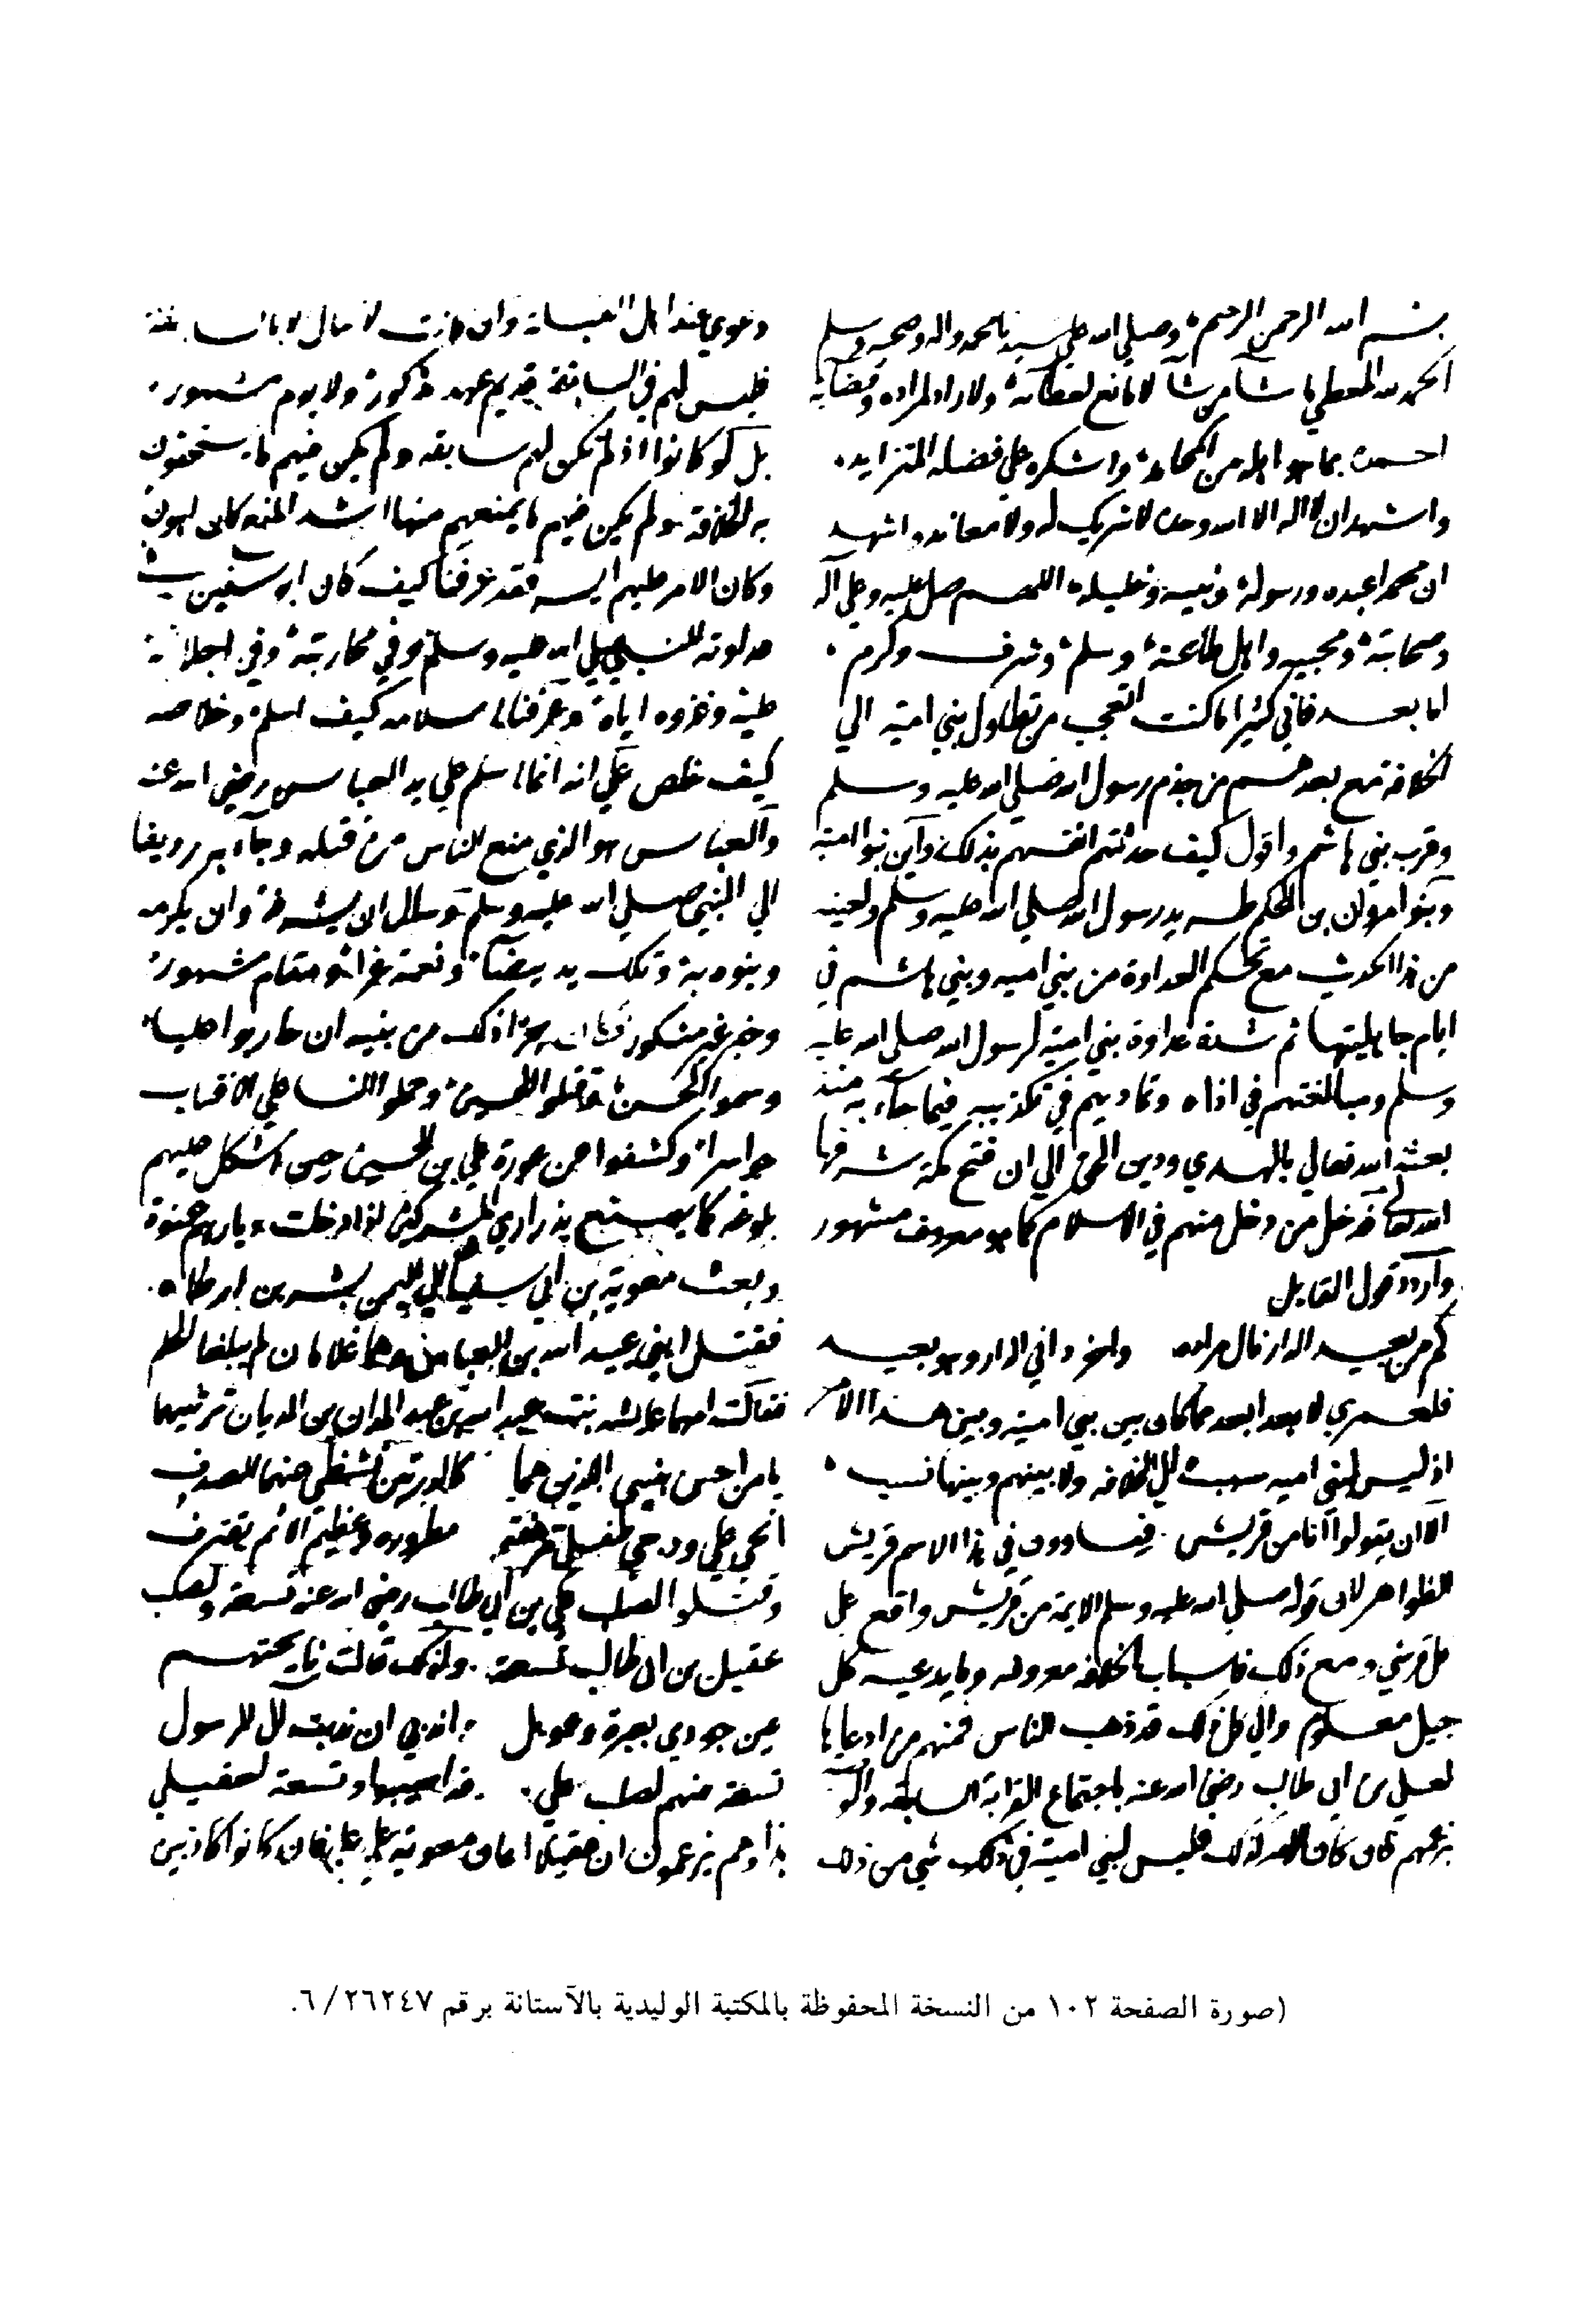 بسم الله الرحمن الرحيم وصلي الله علي سيدنا محمد واله وصحبه وسلم
الحمد لله المعطي ما شآ من شآ لا مانع لعطآئه ولا راد لمراده وقضايه
احمده بما هو اهله من المحامد واشكره علي فضله المتزايد
واشهد ان لا اله الا الله وحده لا شريك له ولا معاند واشهد
ان محمدا عبده ورسوله ونبيه وخليله اللهم صل عليه وعلي آله
وصحابته ومحبيه واهل طاعته وسلم وشرف وكرم
اما بعد فاني كثيرا ما كنت اتعجب من تطاول بني امية الي
الخلافة مع بعدهم من جذم رسول الله صلي الله عليه وسلم
وقرب بني هاشم واقول كيف حدثتهم انفسهم بذلك واين بنوا امية
وبنوا مروان بن الحكم طريد رسول الله صلي الله عليه وسلم ولعينه
من هذا الحديث مع تحكم العداوة من بني اميه وبني هاشم في
ايام جاهليتها ثم شدة عداوة بني امية لرسول الله صلي الله عليه
وسلم ومبالغتهم في اذاه وتماديهم في تكذيبه فيما جآء به منذ
بعثه الله تعالي بالهدي ودين الحق الي ان فتح مكة شرفها
الله تعالي فدخل من دخل منهم في الاسلام كما هو معروف مشهور
واردد قول القايل
كم من بعيد الدار نال مراده واخر داني الدار وهو بعيد
فلعمري لا بعد ابعد مما كان بين بني امية وبين هذا الامر
اذ ليس لبني اميه سبب الي الخلافه ولا بينهم وبينها نسب
الا ان يقولوا انا من قريش فيساوون في هذا الاسم قريش
الظواهر لان قوله صلي الله عليه وسلم الايمة من قريش واقع علي
كل قرشي ومع ذلك فاسباب الخلافه معروفه وما يدعيه كل
جيل معلوم والي كل ذلك قد ذهب الناس فمنهم من ادعاها
لعلي بن ابي طالب رضي الله عنه باجتماع القرابة السابقه والوصية
بزعمهم فان كان الامر كذلك فليس لبني امية في ذلك شي من ذلك
دعوي عند اهل القبلة وان كانت لا تنال الا بالسابقة
فليس لهم في السابقة قديم عهد مذكور ولا يوم مشهور
بل لو كانوا اذ لم تكن لهم سابقه ولم يكن فيهم ما يستحقون
به الخلافة ولم يكن فيهم ما يمنعهم منها اشد المنع كان اهون
وكان الامر عليهم ايسر فقد عرفنا كيف كان ابو سفين في
عداوته للنبي صلي الله عليه وسلم وفي محاربته وفي اجلابه
عليه وغزوه اياه وعرفنا اسلامه كيف اسلم وخلاصه
كيف خلص علي انه انما اسلم علي يد العباس رضي الله عنه
والعباس هو الذي منع الناس من قتله وجآء به رديفا
الي النبي صلي الله عليه وسلم وسال ان يشرفه وان يكرمه
وينوه به وتلك يد بيضآء ونعمة غرآء ومقام مشهور
وخبر غير منكور فكان جزا ذلك من بنيه ان حاربوا عليا
وسموا الحسن وقتلوا الحسين وحملوا النسا علي الاقتاب
حواسرا وكشفوا عن عورة علي بن الحسين حين اشكل عليهم
بلوغه كما يصنع بذراري المشركين اذا دخلت ديارهم عنوة
وبعث معوية بن ابي سفيان الي اليمن بسر بن ارطاه
فقتل ابني عبيد الله بن العباس وهما غلامان لم يبلغا الحلم
فقالت امهما عايشه بنت عبد الله بن عبد المدان بن الديان ترثيهما
يا من احس بنيي اللذين هما كالدرتين تشظي عنهما الصدف
انحي علي ودجي طفلي مرهفة مطروره وعظيم الاثم يقترف
وقتلوا لصلب علي بن ابي طالب رضي الله عنه تسعة ولصلب
عقيل بن ابي طالب تسعة ولذلك قالت نايحتهم
عين جودي بعبرة وعويل واندبي ان ندبت ال الرسول
تسعة منهم لصلب علي قد اصيبوا وتسعة لعقيل
هذا وهم يزعمون ان عقيلا اعان معوية علي علي فان كانوا كاذبين
(صورة الصفحة ١٠٢ من النسخة المحفوظة بالمكتبة الوليدية بالآستانة برقم ٢٦٢٤٧/ ٦.